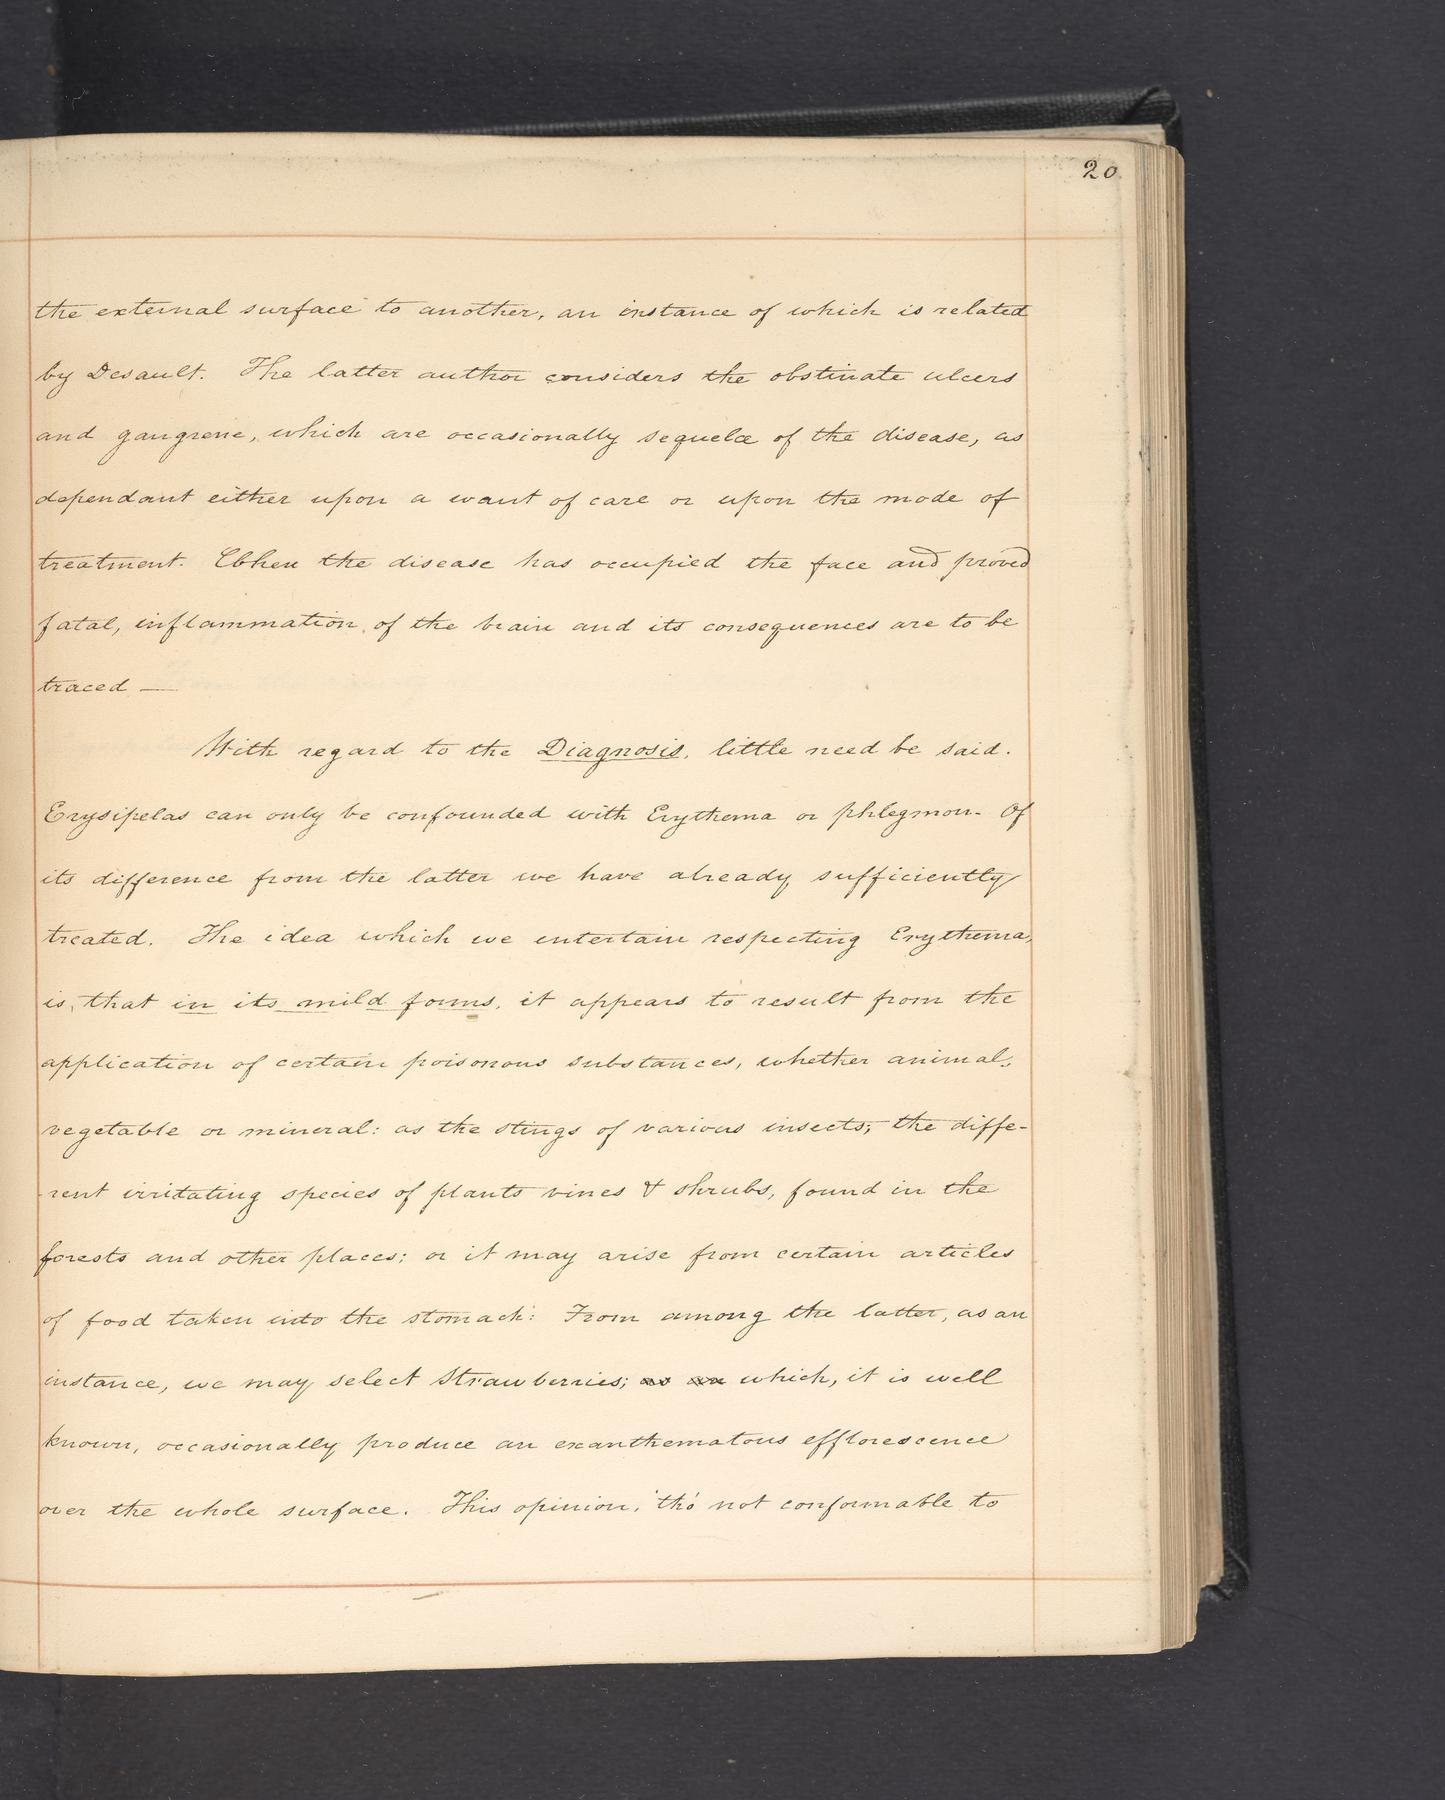 20
the external surface to another, an instance of which is related
by Desault. The latter author considers the obstinate ulcers
and gangrene, which are occasionally sequelæ of the disease, as
dependant either upon a want of care or upon the mode of
treatment. When the disease has occupied the face and proved
fatal, inflammation of the brain and its consequences are to be
traced —
With regard to the Diagnosis, little need be said.
Erysipelas can only be confounded with Erythema or phlegmon. Of
its difference from the latter we have already sufficiently
treated. The idea which we entertain respecting Erythema,
is, that in its mild forms, it appears to result from the
application of certain poisonous substances, whether animal,
vegetable or mineral: as the stings of various insects; the diffe-
-rent irritating species of plants vines & shrubs, found in the
forests and other places; or it may arise from certain articles
of food taken into the stomach: From among the latter, as an
instance, we may select Strawberries; as an which, it is well
known, occasionally produce an exanthematous efflorescence
over the whole surface. This opinion, 'tho' not conformable to